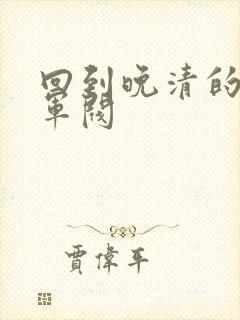 回到晚清的
軍閥
賈偉平